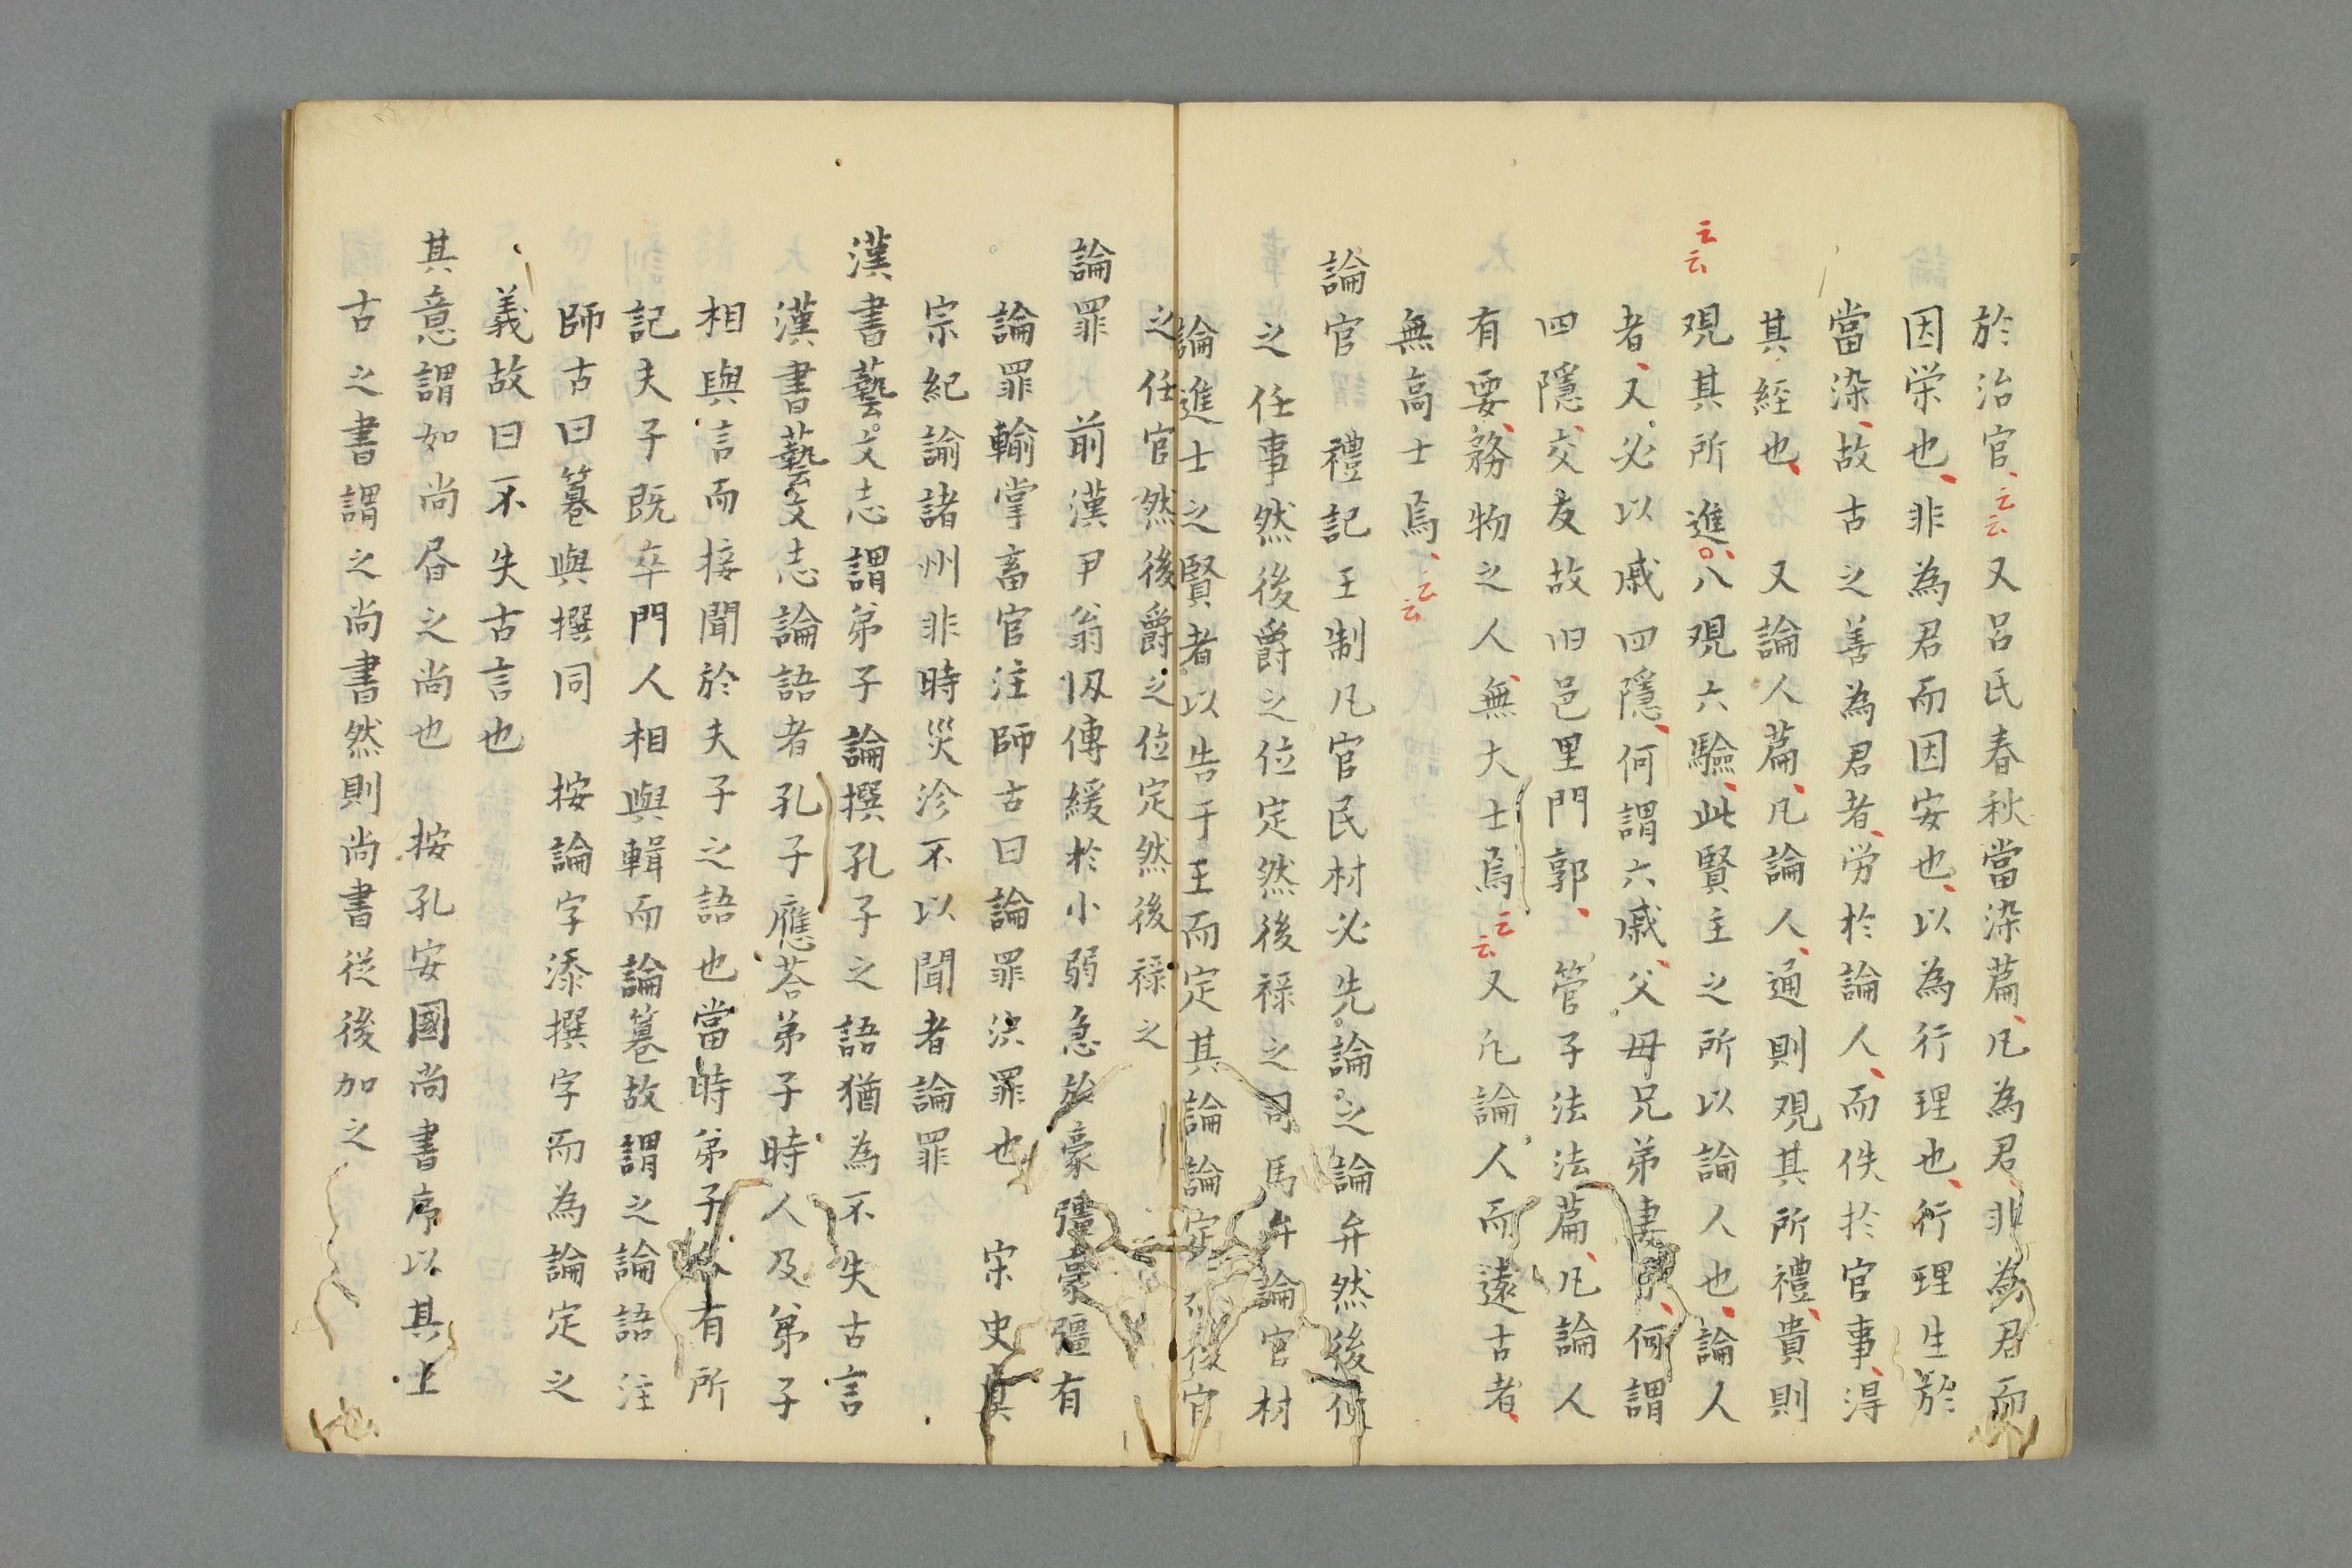 於治官云云又呂氏春秋當染篇凡為君非為君而
因栄也非為君而因安也以為行理也行理生於
當染故古之善為君者労於論人而佚於官事得
其經也 又論人篇凡論人通則観其所禮貴則
観其所進云云八観六驗此賢主之所以論人也論人
者又必以戚四隱何謂六戚父母兄弟妻子何謂
四隱交友故旧邑里門郭 管子法法篇凡論人
有要務物之人無大士焉云云又凡論人而遠古者
無高士焉云云
論官 禮記王制凡官民材必先論之論弁然後使
之任事然後爵之位定然後禄之司馬弁論官材
論進士之賢者以告于王而定其論論定然後官
之任官然後爵之位定然後禄之
論罪 前漢尹翁歸傳緩於小弱急於豪彊豪彊有
論罪輸掌畜官注師古曰論罪決罪也 宋史真
宗紀論諸州非時災沴不以聞者論罪
漢書藝文志謂弟子論撰孔子之語猶為不失古言
漢書藝文志論語者孔子應荅弟子時人及弟子
相與言而接聞於夫子之語也當時弟子各有所
記夫子既卒門人相與輯而論篹故謂之論語注
師古曰篹與撰同 按論字添撰字而為論定之
義故曰不失古言也
其意謂如尚昏之尚也 按孔安國尚書序以其上
古之書謂之尚書然則尚書從後加之